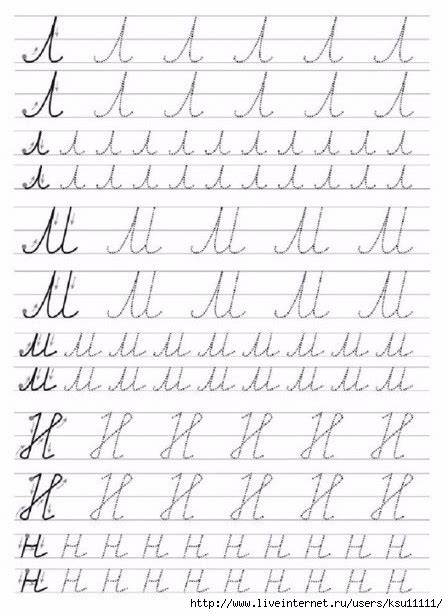 Л Л Л Л Л Л
Л Л Л Л Л Л
л л л л л л л л л л л
л л л л л л л л л л л
М М М М М
М М М М М
м м м м м м м м м
м м м м м м м м м
Н Н Н Н Н Н
Н Н Н Н Н Н
н н н н н н н н н н
н н н н н н н н н н
http://www.liveinternet.ru/users/ksu11111/